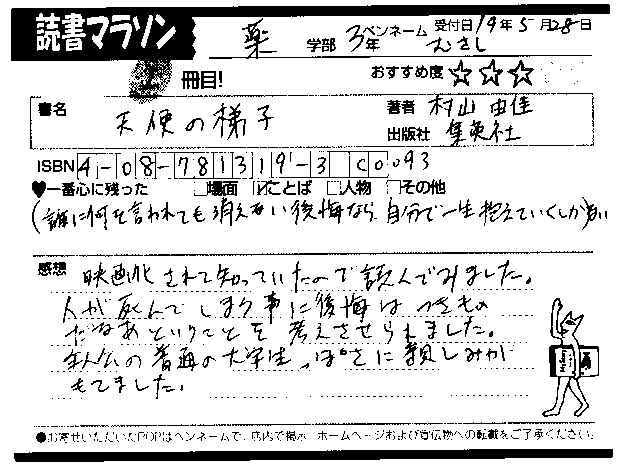 読書マラソン
薬 学部 3年 ペンネーム むさし 受付日 19年5月28日
冊目! おすすめ度 ☆☆☆
書名 天使の梯子 著者 村山由佳
出版社 集英社
ISBN 4-08-781319-3 C0093
♥一番心に残った □場面 ☑ことば □人物 □その他
(誰に何を言われても消えない後悔なら、自分で一生抱えていくしかない
感想 映画化されて知っていたので読んでみました。
人が死んでしまう事に後悔はつきもの
だなあということを考えさせられました。
主人公の普通の大学生っぽさに親しみが
もてました。
●お寄せいただいたPOPはペンネームで、店内で掲示、ホームページおよび宣伝物への転載をご了承ください。